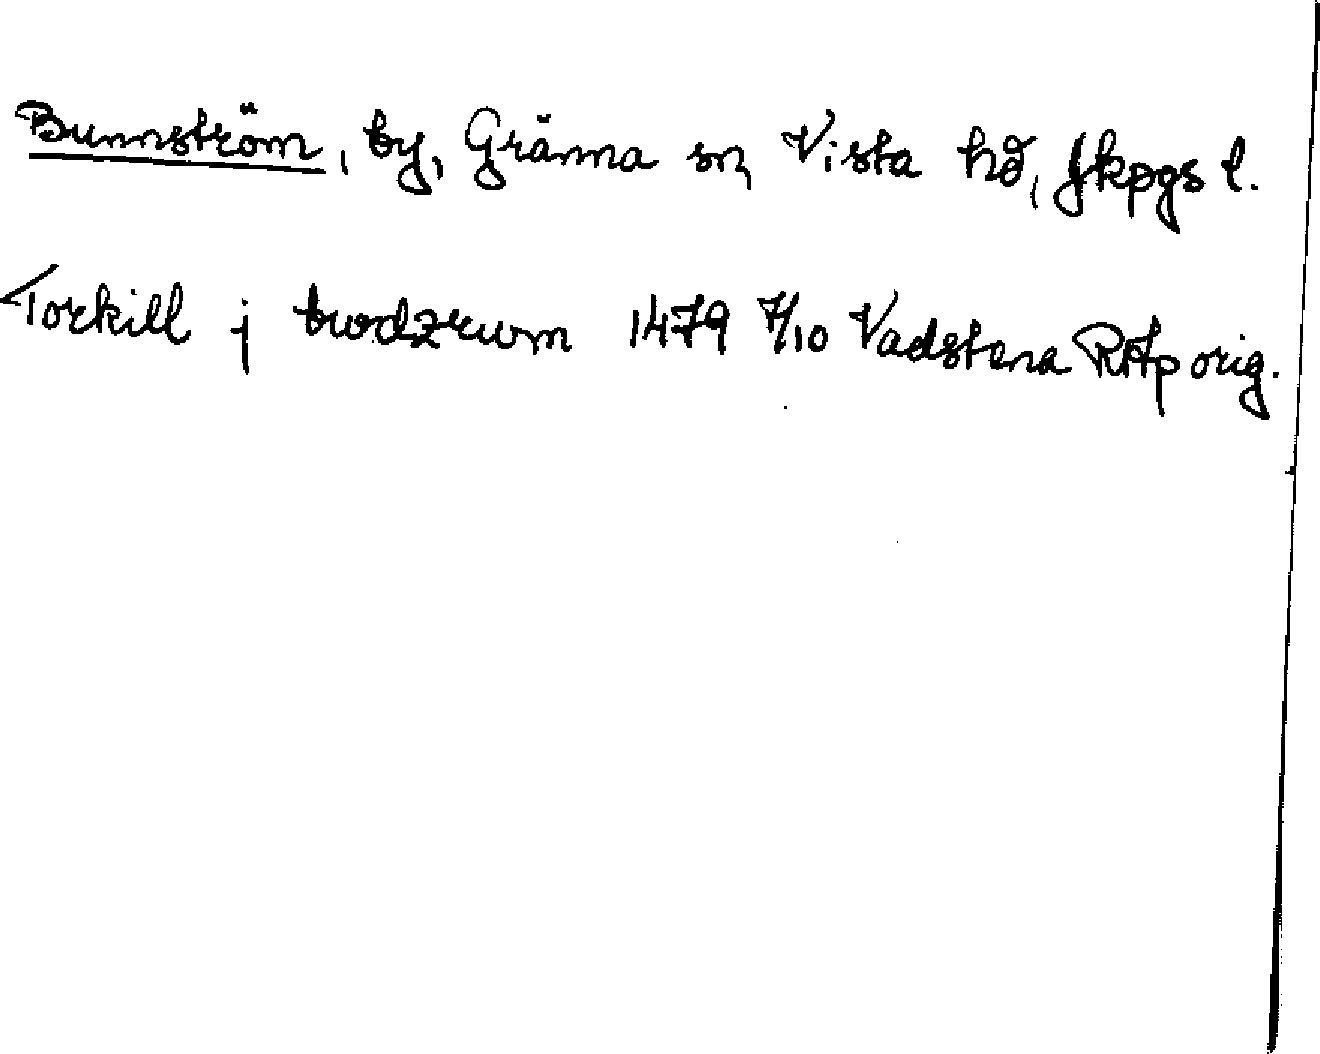 Bunnström, by, Gränna sn, Vista hd, Jkpgs l.
Torkill j budzrum 1479 7/10 Vadstena RAp orig.